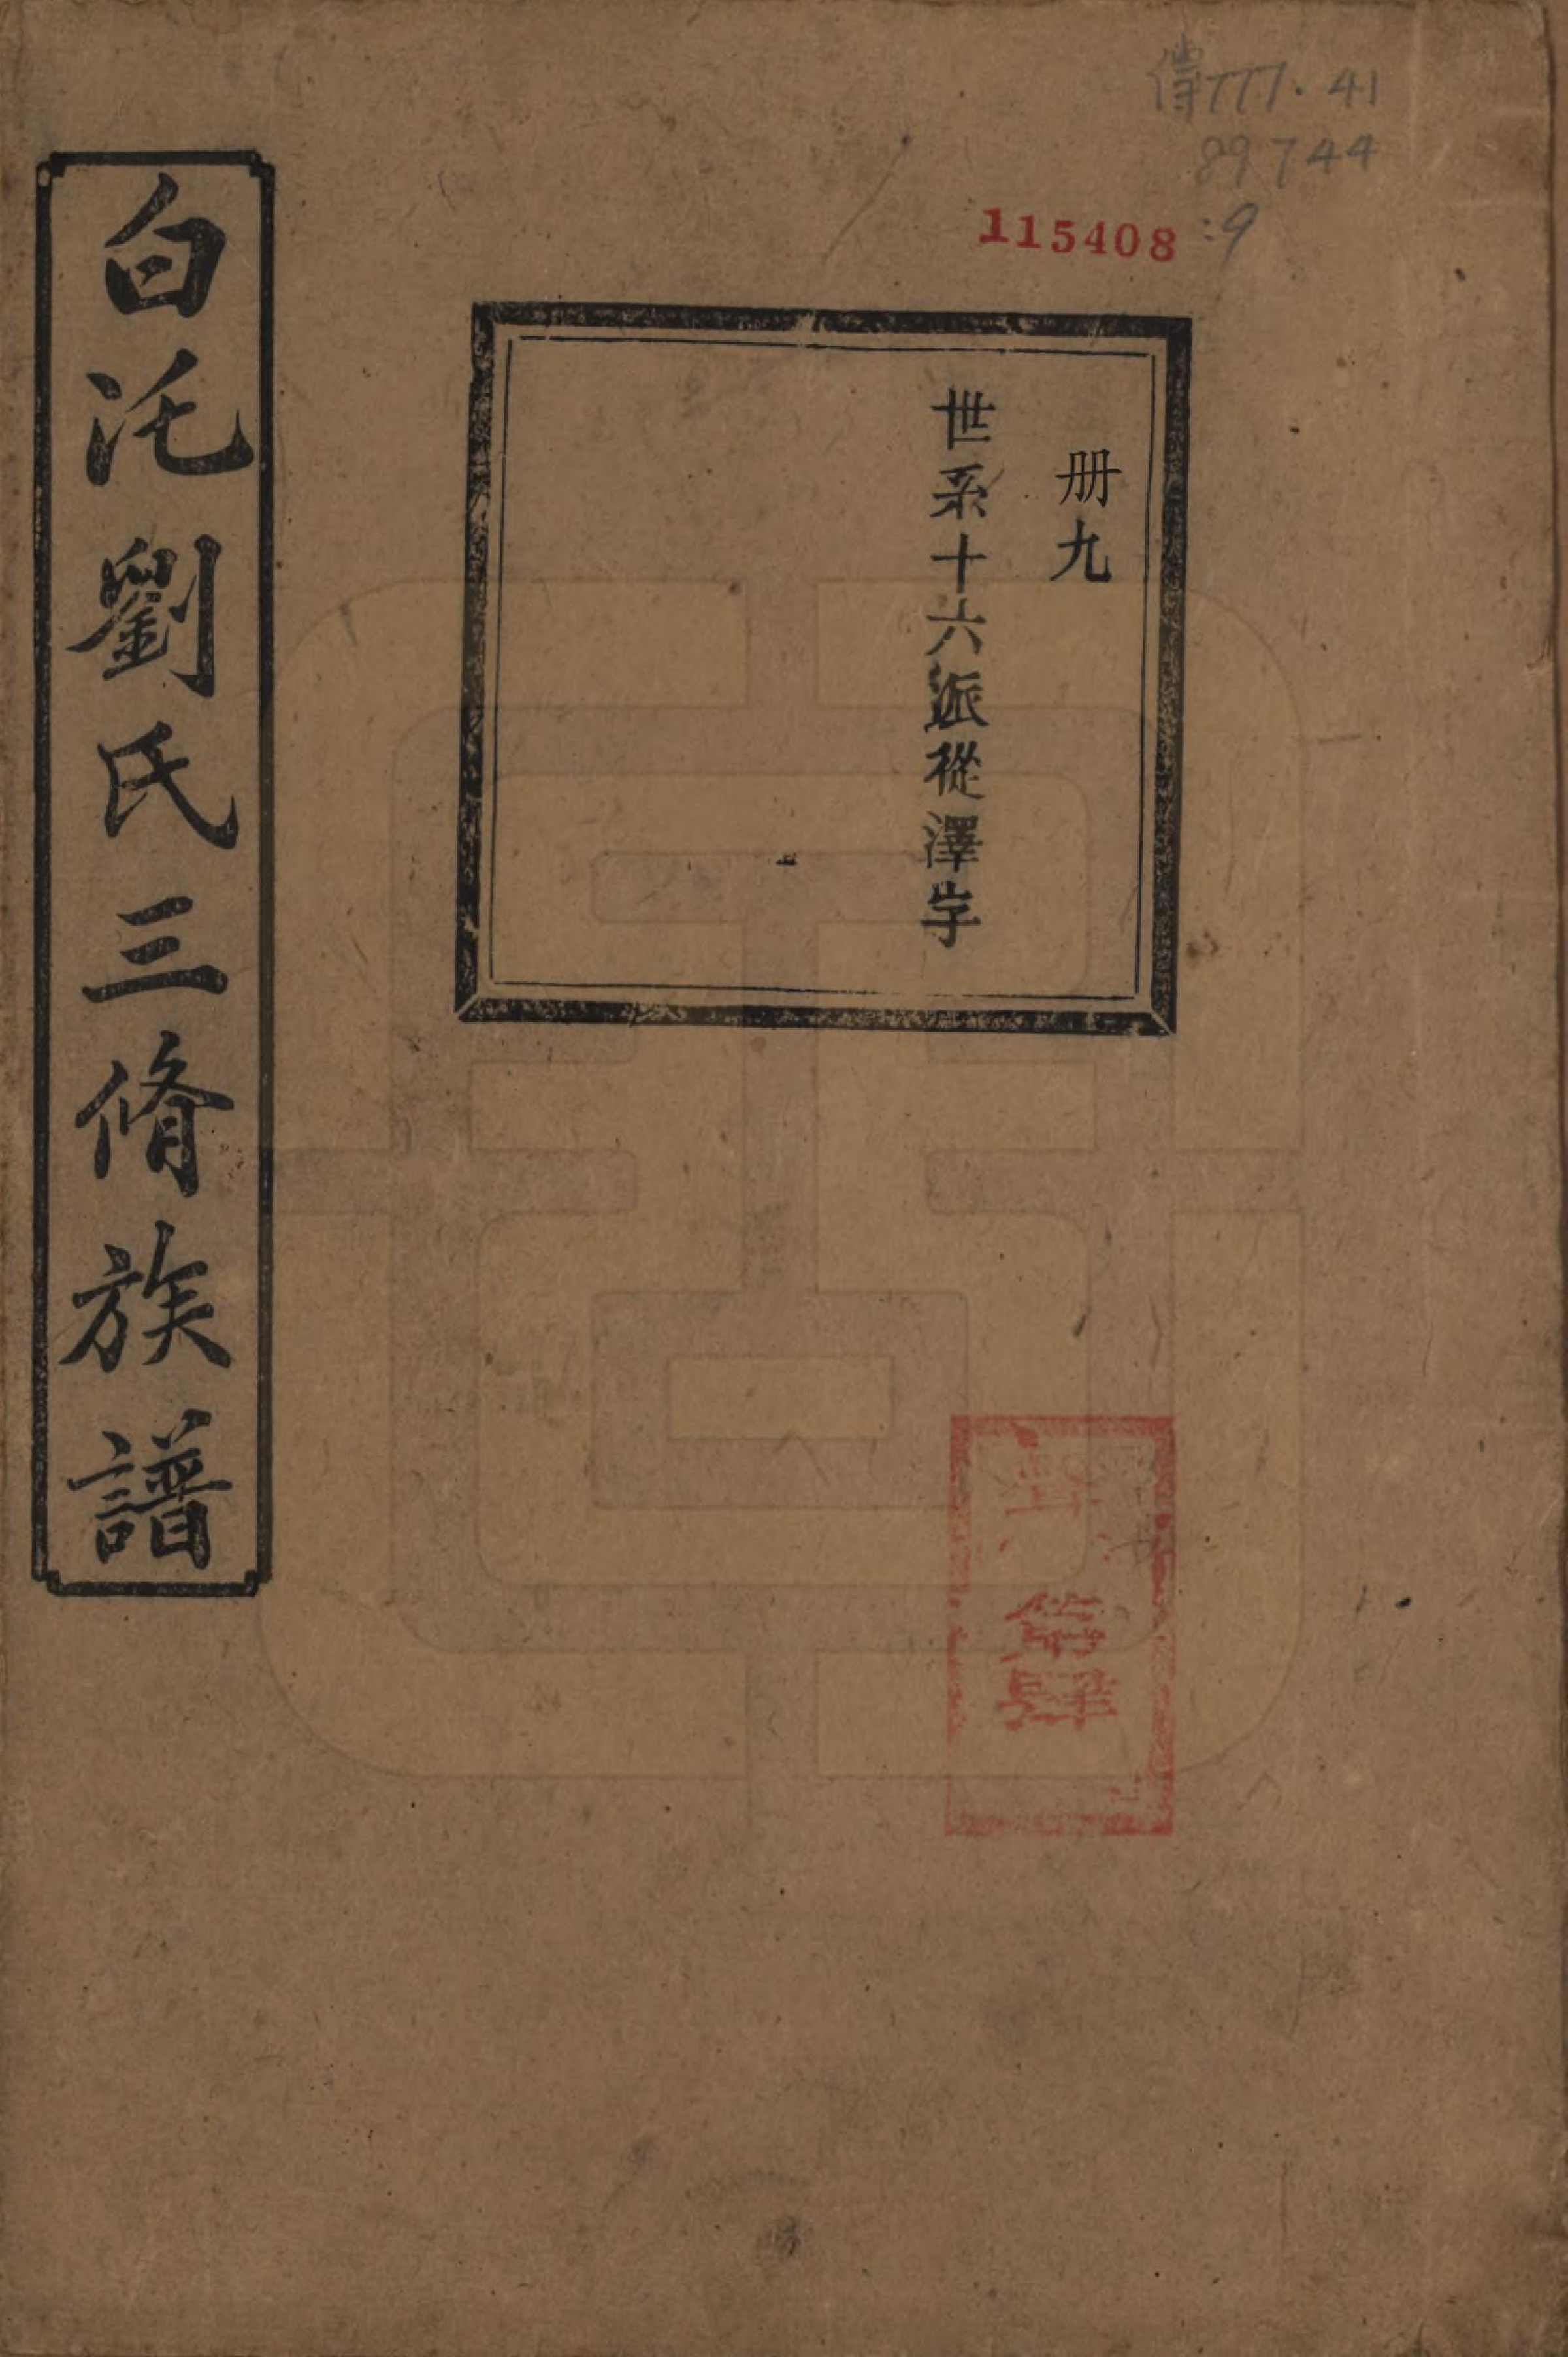 傳777.41
89744
:9
115408
冊九
世系十六派從澤字
白沱劉氏三脩族譜
第肆